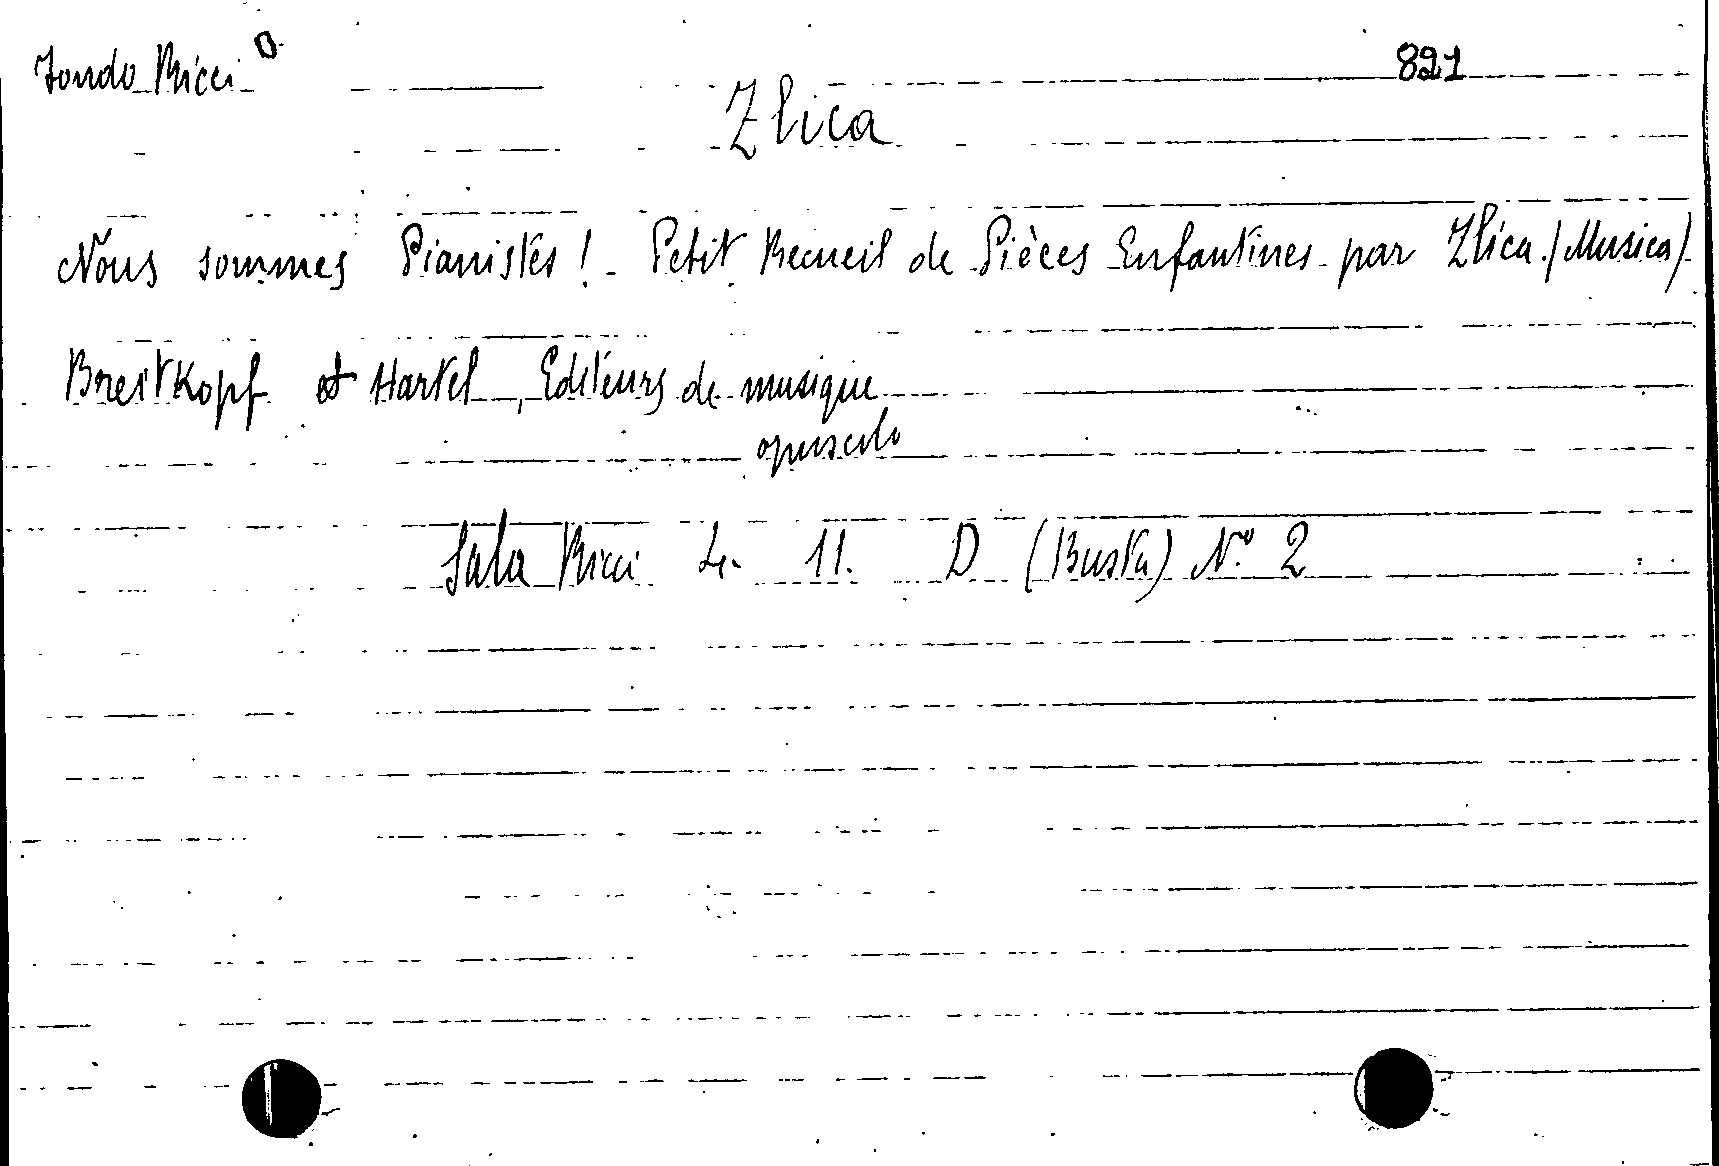 Fondo Ricci D.
821
Zlica
Nous sommes Pianistes! - Petit Recueil de Pièces Enfantines par Zlica. (Musica)
Breitkopf et Hartel, Editeurs de musique
opuscolo
Sala Ricci 4. 11. D (Busta) N.° 2